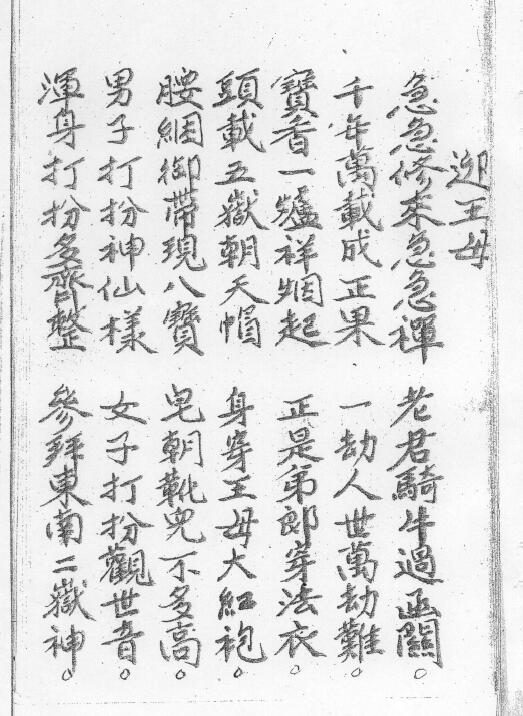 迎王母
急急修來急急禪　老君騎牛過函關。
千年萬載成正果　一劫人世萬劫難。
寶香一爐祥烟起　正是弟郎穿法衣。
頭載五嶽朝天帽　身穿王母大紅袍。
腰綑御帶現八寶　皂朝靴兒不多高。
男子打扮神仙樣　女子打扮觀世音。
渾身打扮多齊整　參拜東南二嶽神。